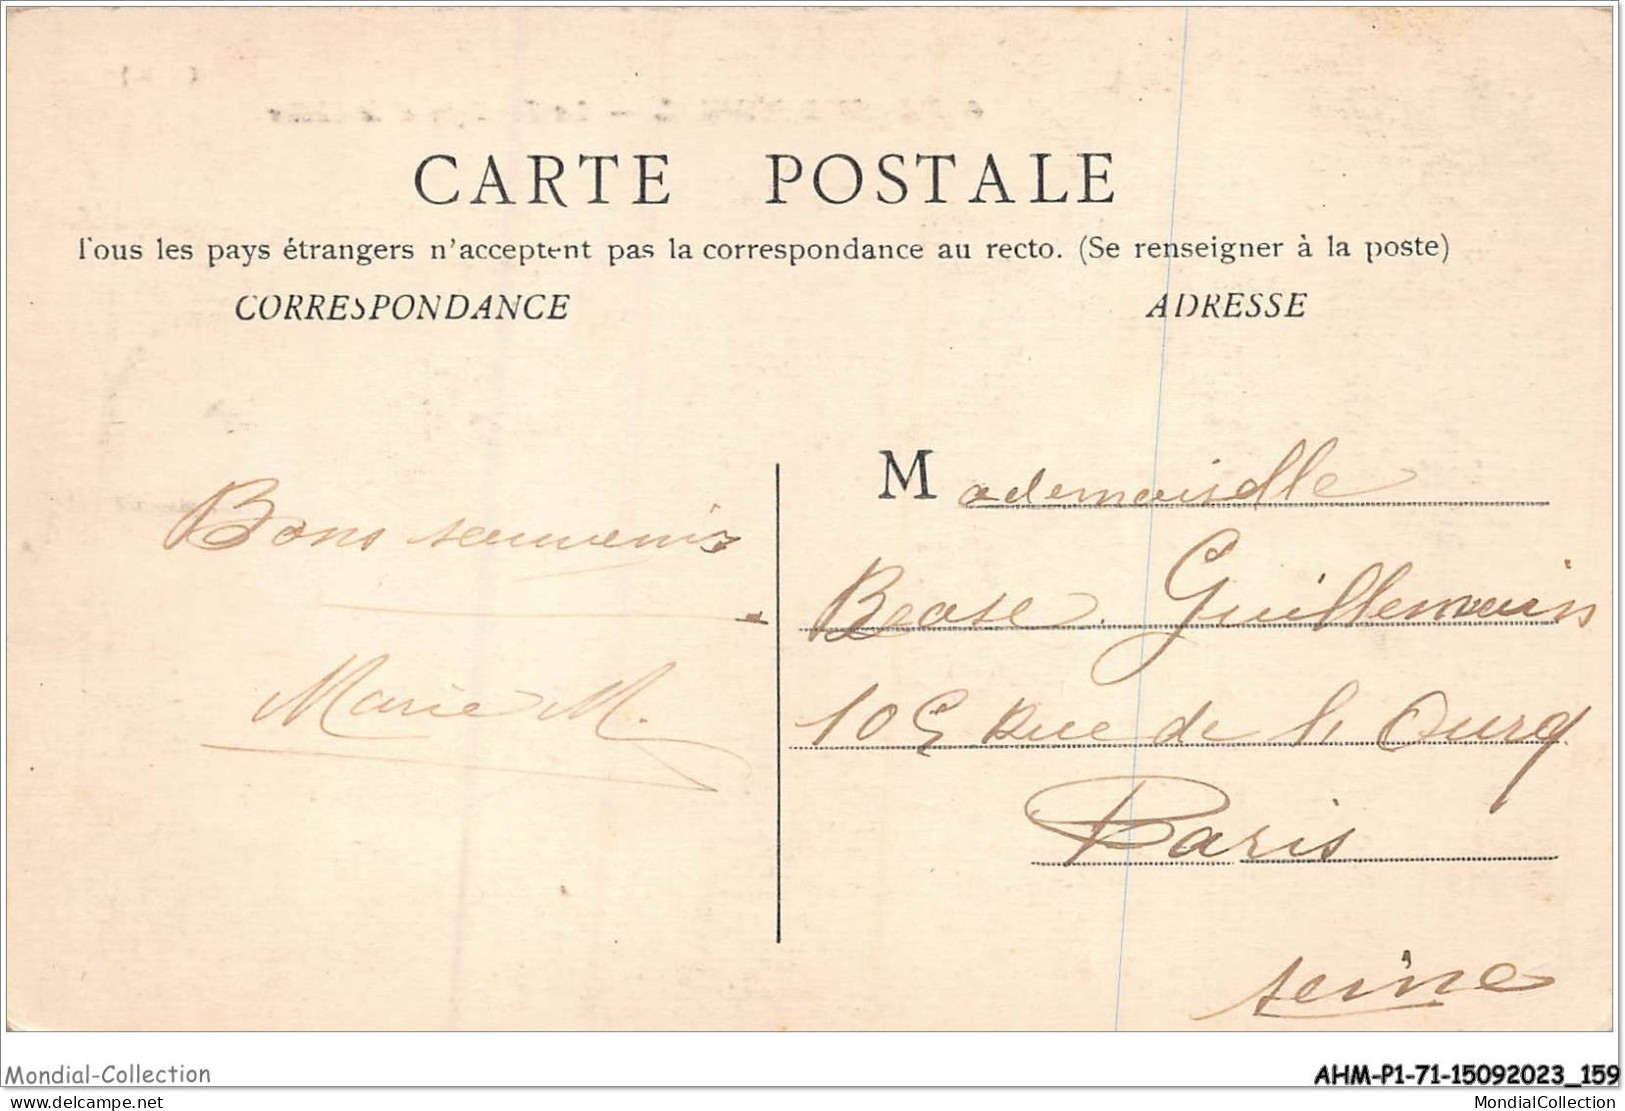 CARTE POSTALE
Tous les pays étrangers n'acceptent pas la correspondance au recto. (Se renseigner à la poste)
CORRESPONDANCE
ADRESSE
Bons souvenirs
Marie M.
Mademoiselle
Guillemain
Rue de l'Ourcq
Paris
Seine
Mondial-Collection
AHM-P1-71-15092023_159
www.delcampe.net
MondialCollection